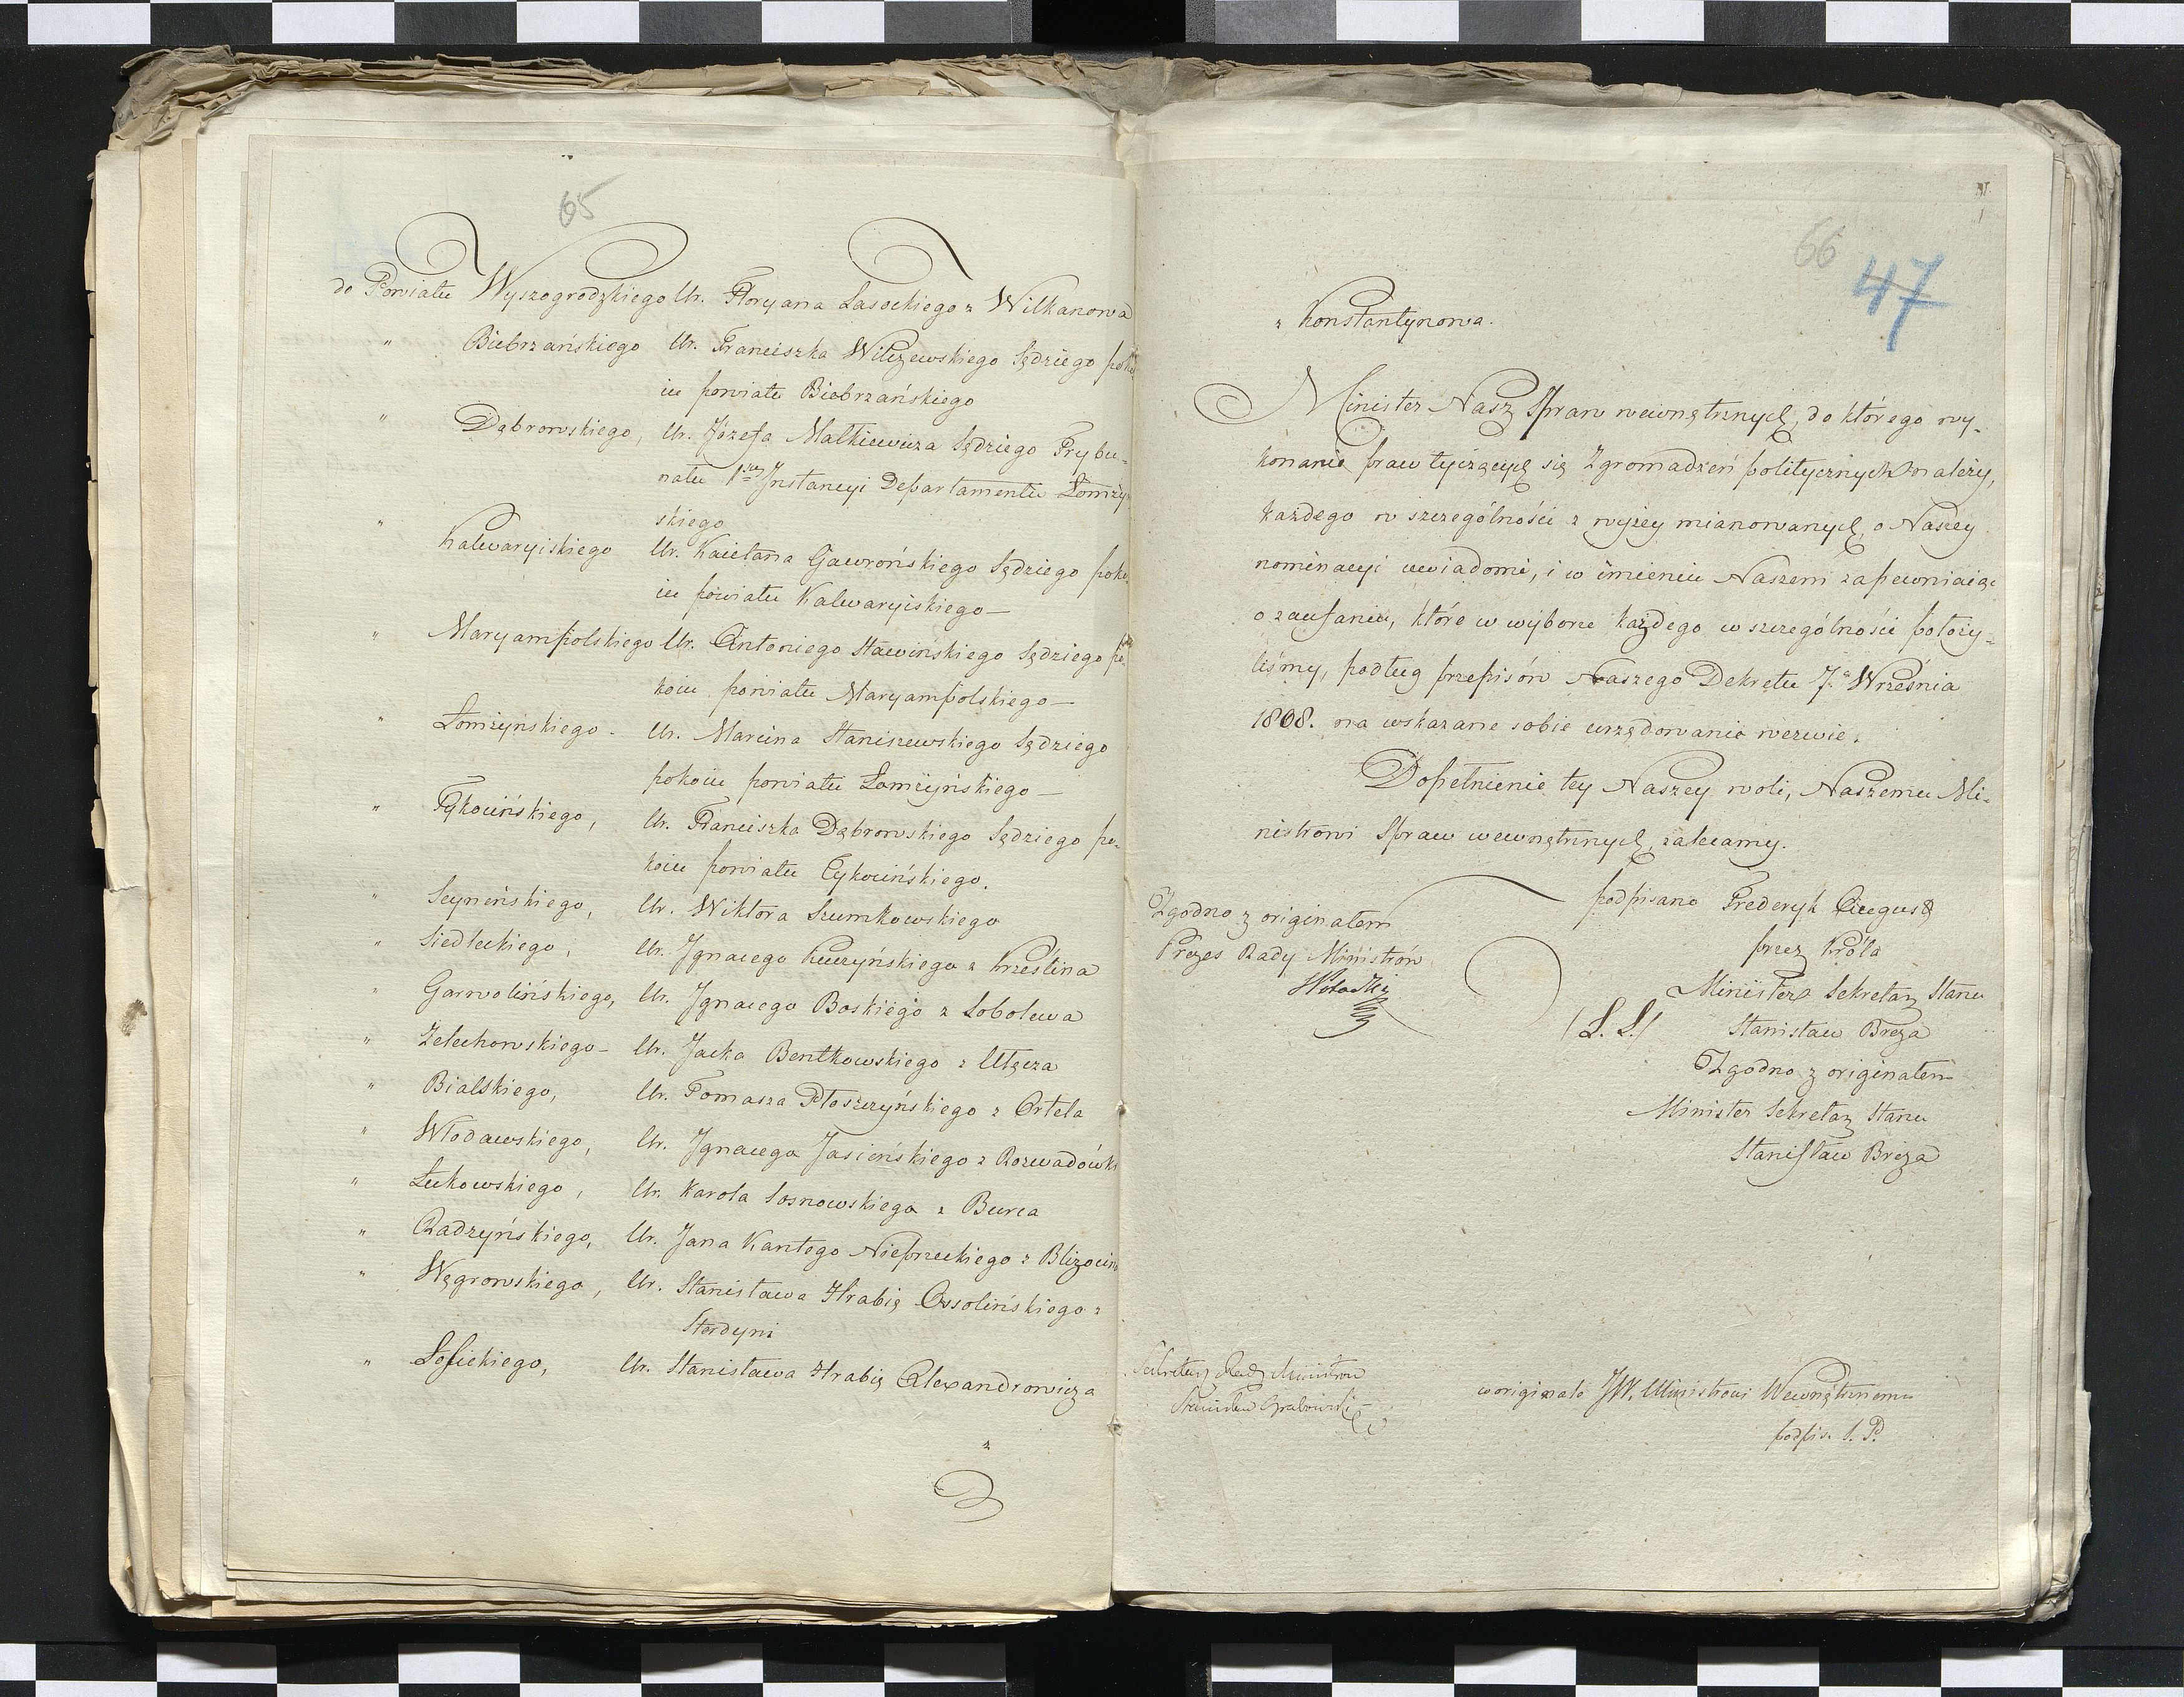 65
do Powiatu Wyszogrodzkiego Ur. Floryana Lasockiego z Wilkanowa
" Biebrzańskiego Ur. Franciszka Wilczewskiego Sędziego poko
iu powiatu Biebrzańskiego
" Dąbrowskiego, Ur. Józefa Malkiewicza Sędziego Trybu-
nału 1szey Instancyi Departamentu Łomży
skiego
" Kalwaryiskiego Ur. Kaietana Gawrońskiego Sędziego poko
iu powiatu Kalwaryiskiego —
" Maryampolskiego Ur. Antoniego Stawińskiego Sędziego po-
koiu powiatu Maryampolskiego —
" Łomżyńskiego. Ur. Marcina Staniszewskiego Sędziego
pokoiu powiatu Łomżyńskiego —
" Tykocińskiego, Ur. Franciszka Dąbrowskiego Sędziego po-
koiu powiatu Tykocińskiego.
" Seyneńskiego, Ur. Wiktora Szumkowskiego
" Siedleckiego, Ur. Ignacego Kuczyńskiego z Krześlina
" Garwolińskiego, Ur. Ignacego Boskiego z Sobolewa
" Żelechowskiego — Ur. Jacka Bentkowskiego z Ułęcza
" Bialskiego, Ur. Tomasza Płoszczyńskiego z Ortela
" Włodawskiego, Ur. Ignacego Jasieńskiego z Rozwadówk
" Łukowskiego, Ur. Karola Sosnowskiego z Burca
" Radzyńskiego, Ur. Jana Kantego Nieprzeckiego z Blizocin
" Węgrowskiego, Ur. Stanisława Hrabię Ossolińskiego z
Sterdyni
" Łosickiego, Ur. Stanisława Hrabię Alexandrowicza
z
66
47
z Konstantynowa.
Minister Nasz Spraw wewnętrznych, do którego wy-
konanie praw tyczących się Zgromadzeń politycznych należy,
każdego w szczególności z wyżey mianowanych, o Naszey
nominacyi uwiadomi, i w imieniu Naszem zapewniaiąc
o zaufaniu, które w wyborze każdego w szczególności położy-
liśmy, podług przepisów Naszego Dekretu 7. Września
1808. na wskazane sobie urzędowanie wezwie.
Dopełnienie tey Naszey woli, Naszemu Mi-
nistrowi Spraw wewnętrznych, zalecamy.
podpisano Frederyk August
przez Króla
Minister Sekretarz Stanu
(L. S.) Stanisław Breza
Zgodno z originałem
Minister Sekretarz Stanu
Stanisław Breza
Zgodno z originałem
Prezes Rady Ministrów
Sekretarz Rady Ministrów
Stanisław Grabowski
w originale JW. Ministrowi Wewnętrznemu
podpis. S. P.